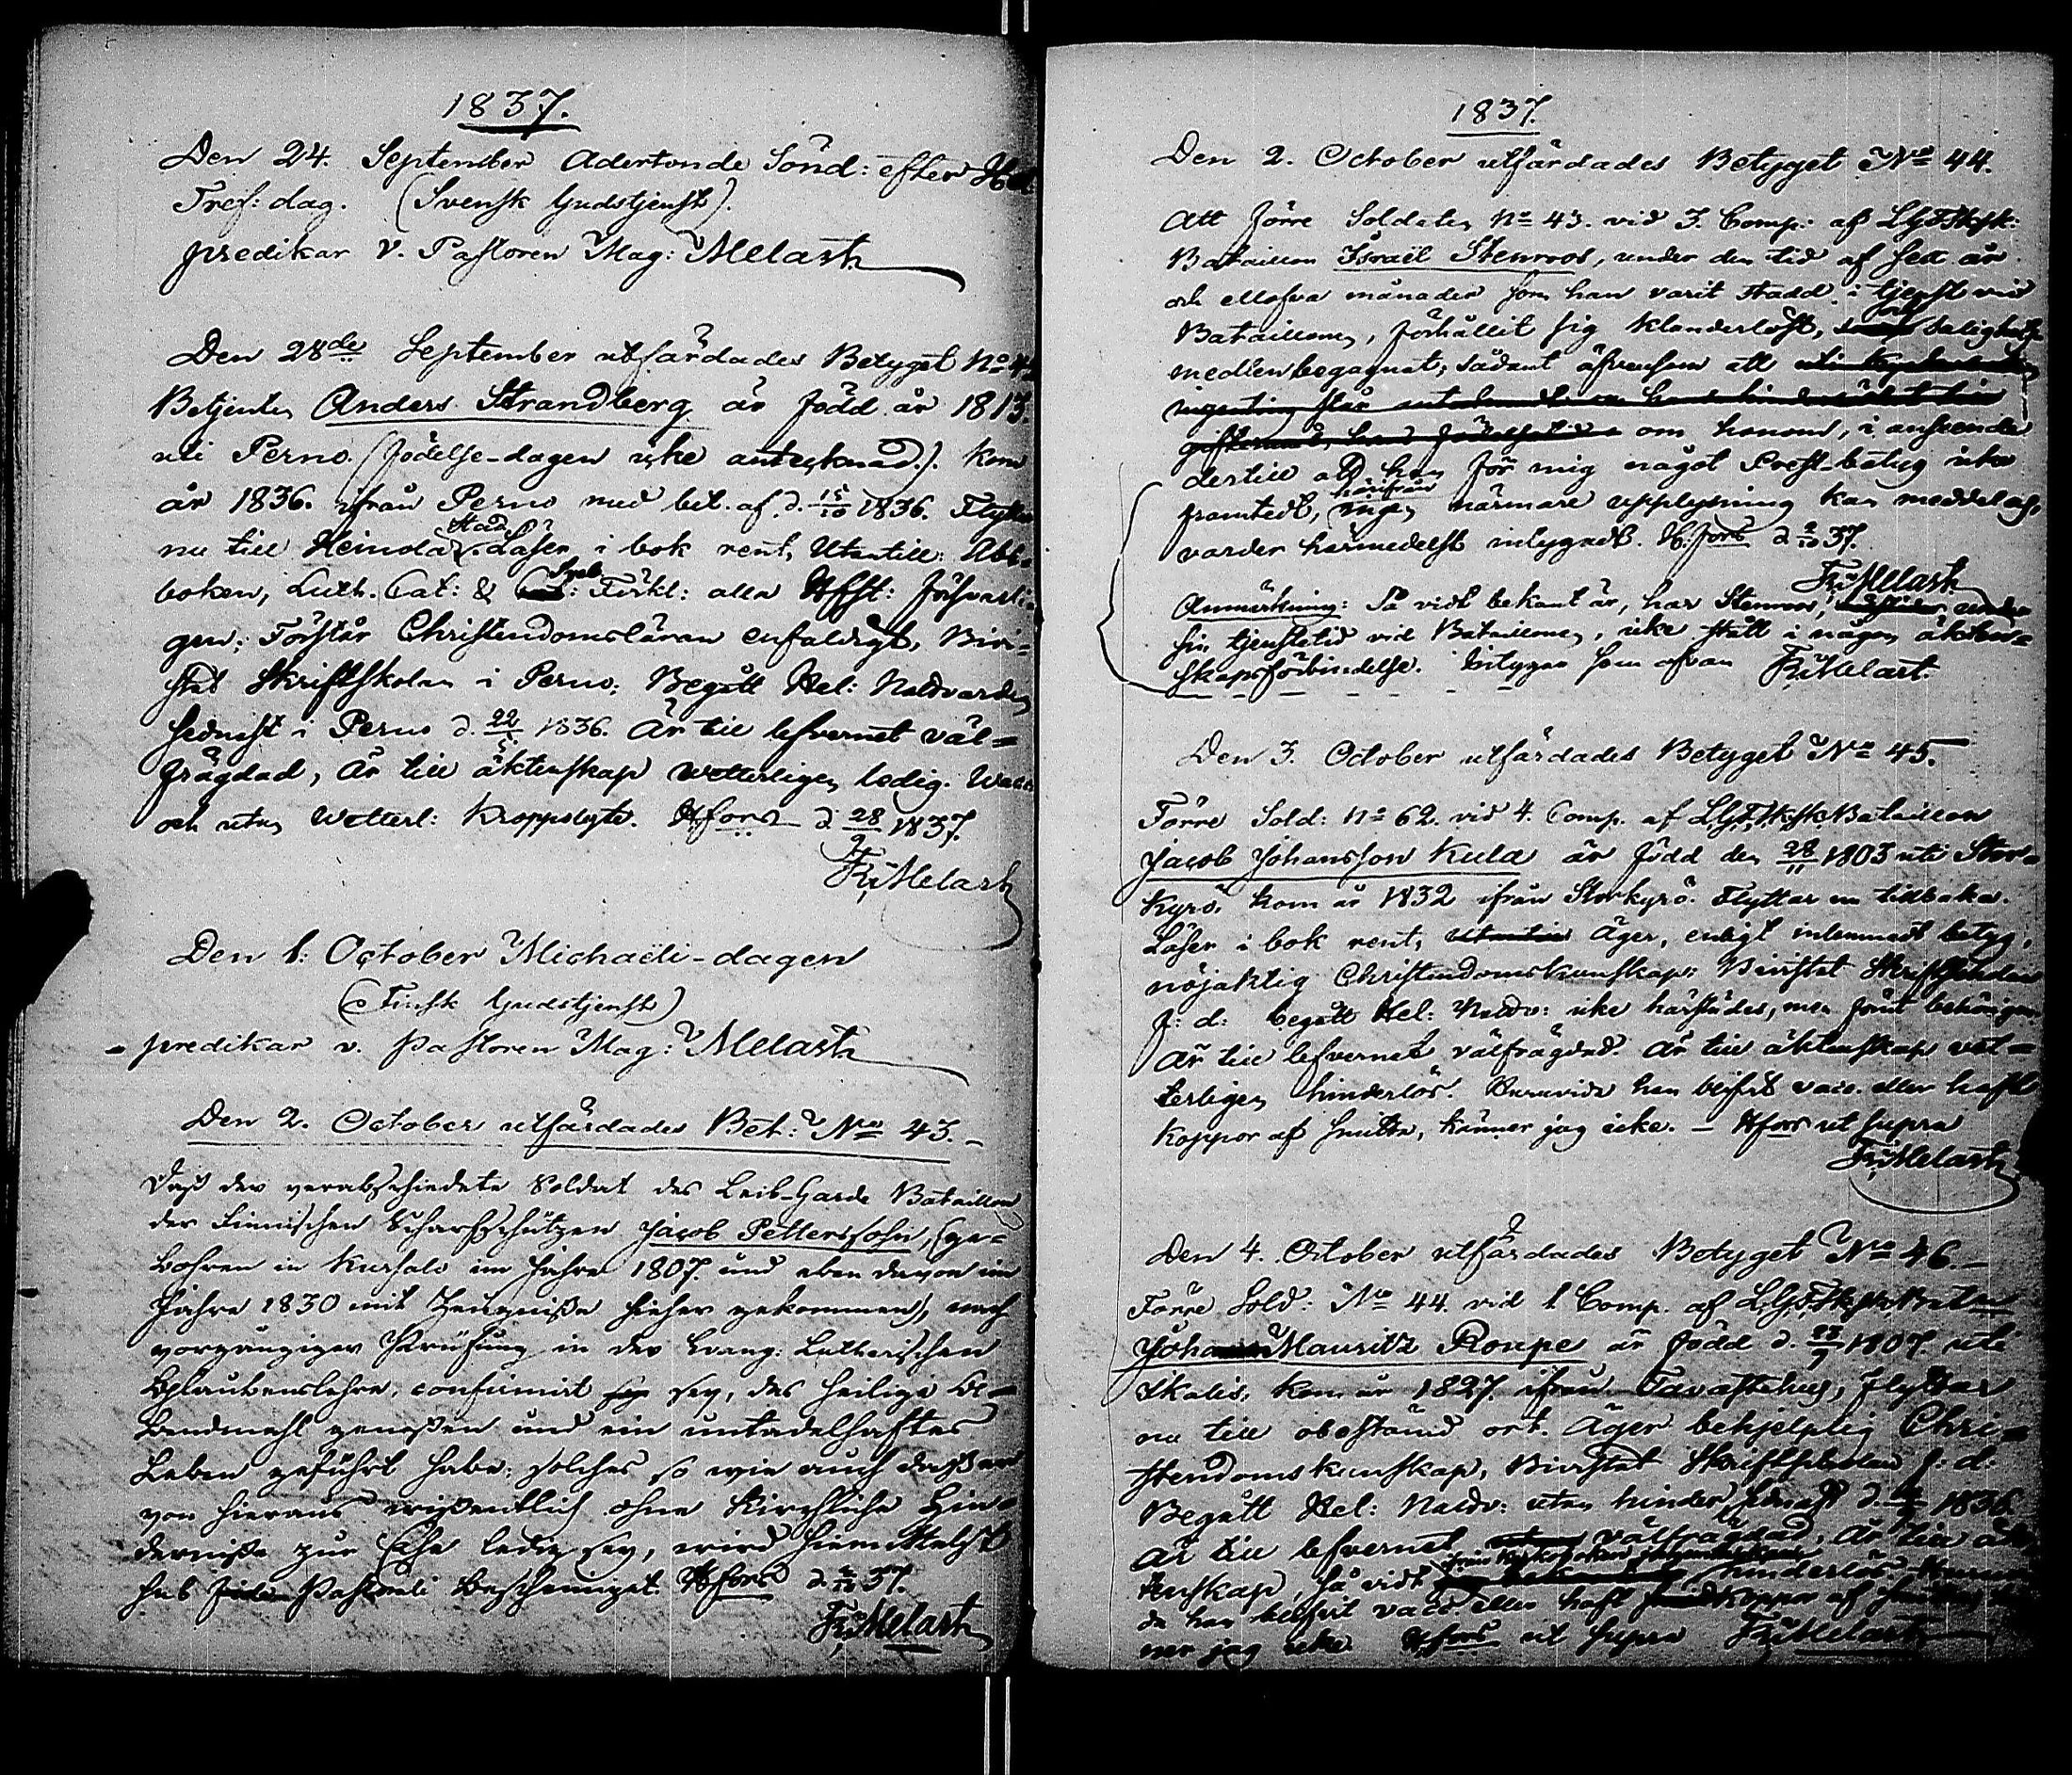 1837.
Den 24. September Adertonde Sönd: efter H.
Tref: dag. (Svensk Gudstjenst).
predikar v. Pastoren Mag: Melart
Den 28de September utfärdades Betyget No 42
Betjenten Anders Strandberg är född år 1813.
uti Perno. (födelse-dagen icke antecknad.). Kom
år 1836. ifrån Perno med bet. af d. 15/10 1836. Flyttar
nu till Heinola Stad. Läser i bok rent, Utantill: Abc-
boken, Luth. Cat: & Symb: Förkl: alla Hfst: försvarli-
gen; Förstår Christendomsläran enfaldigt, Bivi-
stat Skriftskolan i Perno; Begått Hel: Nattvarden
sednast i Perno d. 22/5 1836. Är till lefvernet väl-
frägdad, är till äktenskap vetterligen ledig. Vacc.
och utan vetterl: Kroppslyte. Hfors d. 28/9 1837.
Fr: Melart
Den 1: October Michaëli-dagen
(Finsk Gudstjenst)
predikar v. Pastoren Mag: Melart
Den 2. October utfärdades Bet: No 43.
Daß der verabschiedete Soldat des Leib-Garde Bataillons
der Finnischen Scharfschützen Jacob Pettersohn, (ge-
bohren in Kuhsalo im Jahre 1807. und eben davon im
Jahre 1830 mit Zeugniße hieher gekommen), nach
vorgängiger Prüfung in der Evang: Lutherischen
Glaubenslehre, confirmirt sey, das heilige A-
bendmahl genoßen und ein untadelhaftes
Leben geführt habe; solches so wie auch daß er
von hieraus wißentlich ohne Kirchliche Hin-
derniße zur Ehe ledig sey, wird hiemittelst
sub Pastorali bescheiniget. Hfors d. 2/10 37.
Fr: Melart
1837.
Den 2. October utfärdades Betyget No 44.
Att förre Soldaten No 43. vid 3. Comp: af LGFSksk:
Bataillon Israël Stenroos, under den tid af sex år
och ellofva månader som han varit stadd i tjenst vid
Bataillonen, förhållit sig klanderlöst, salighets-
medlen begagnat; sådant äfvensom att
ingenting
giftermål, hans
om honom, i anseende
dertill att han för mig något Prest-betyg icke
framtedt, härifrån ingen närmare upplysning kan meddelas,
varder härmedelst intygadt. H:fors d. 2/10 37.
Fr: Melart
Anmärkning: Så vidt bekant är, har Stenroos, under
sin tjenstetid vid Bataillonen, icke stått i någon äkten-
skapsförbindelse. Intygar som ofvan Fr: Melart.
Den 3. October utfärdades Betyget No 45.
Förre Sold: No 62. vid 4. Comp. af LGFSksk. Bataillon
Jacob Johansson Kula är född den 28/11 1803 uti Stor-
kyro; kom år 1832 ifrån Storkyrö. Flyttar nu tillbaka.
Läser i bok rent, Äger, enligt inlemnadt betyg,
nöjaktig Christendomskunskap; Bivistat Skriftskolan
f: d: begått Hel: Nattv: icke härstädes, men förut behörigen
Är till lefvernet välfrägdad. Är till äktenskap vet-
terligen hinderlös. Huruvida han blifvit vacc. eller haft
koppor af smitta, känner jag icke. – Hfors ut supra
Fr: Melart
Den 4. October utfärdades Betyget No 46.
Förre Sold: No 44. vid 1 Comp. af LGFSksk. Bataln
Johan Mauritz Roupe är född d. 1807. uti
kom år 1827. ifrån Tavastehus, flyttar
nu till obestämd ort. Äger behjelplig Chri-
stendomskunskap, Bivistat Skriftskolan f: d:
Begått Hel: Nattv: utan hinder sednast d. 1836.
Är till lefvernet välfrägdad, är till äk-
tenskap, så vidt hinderlös. Huruvi-
da han blifvit vacc. eller haft koppor af smitta, kän-
ner jag icke Hfors ut supra Fr: Melart